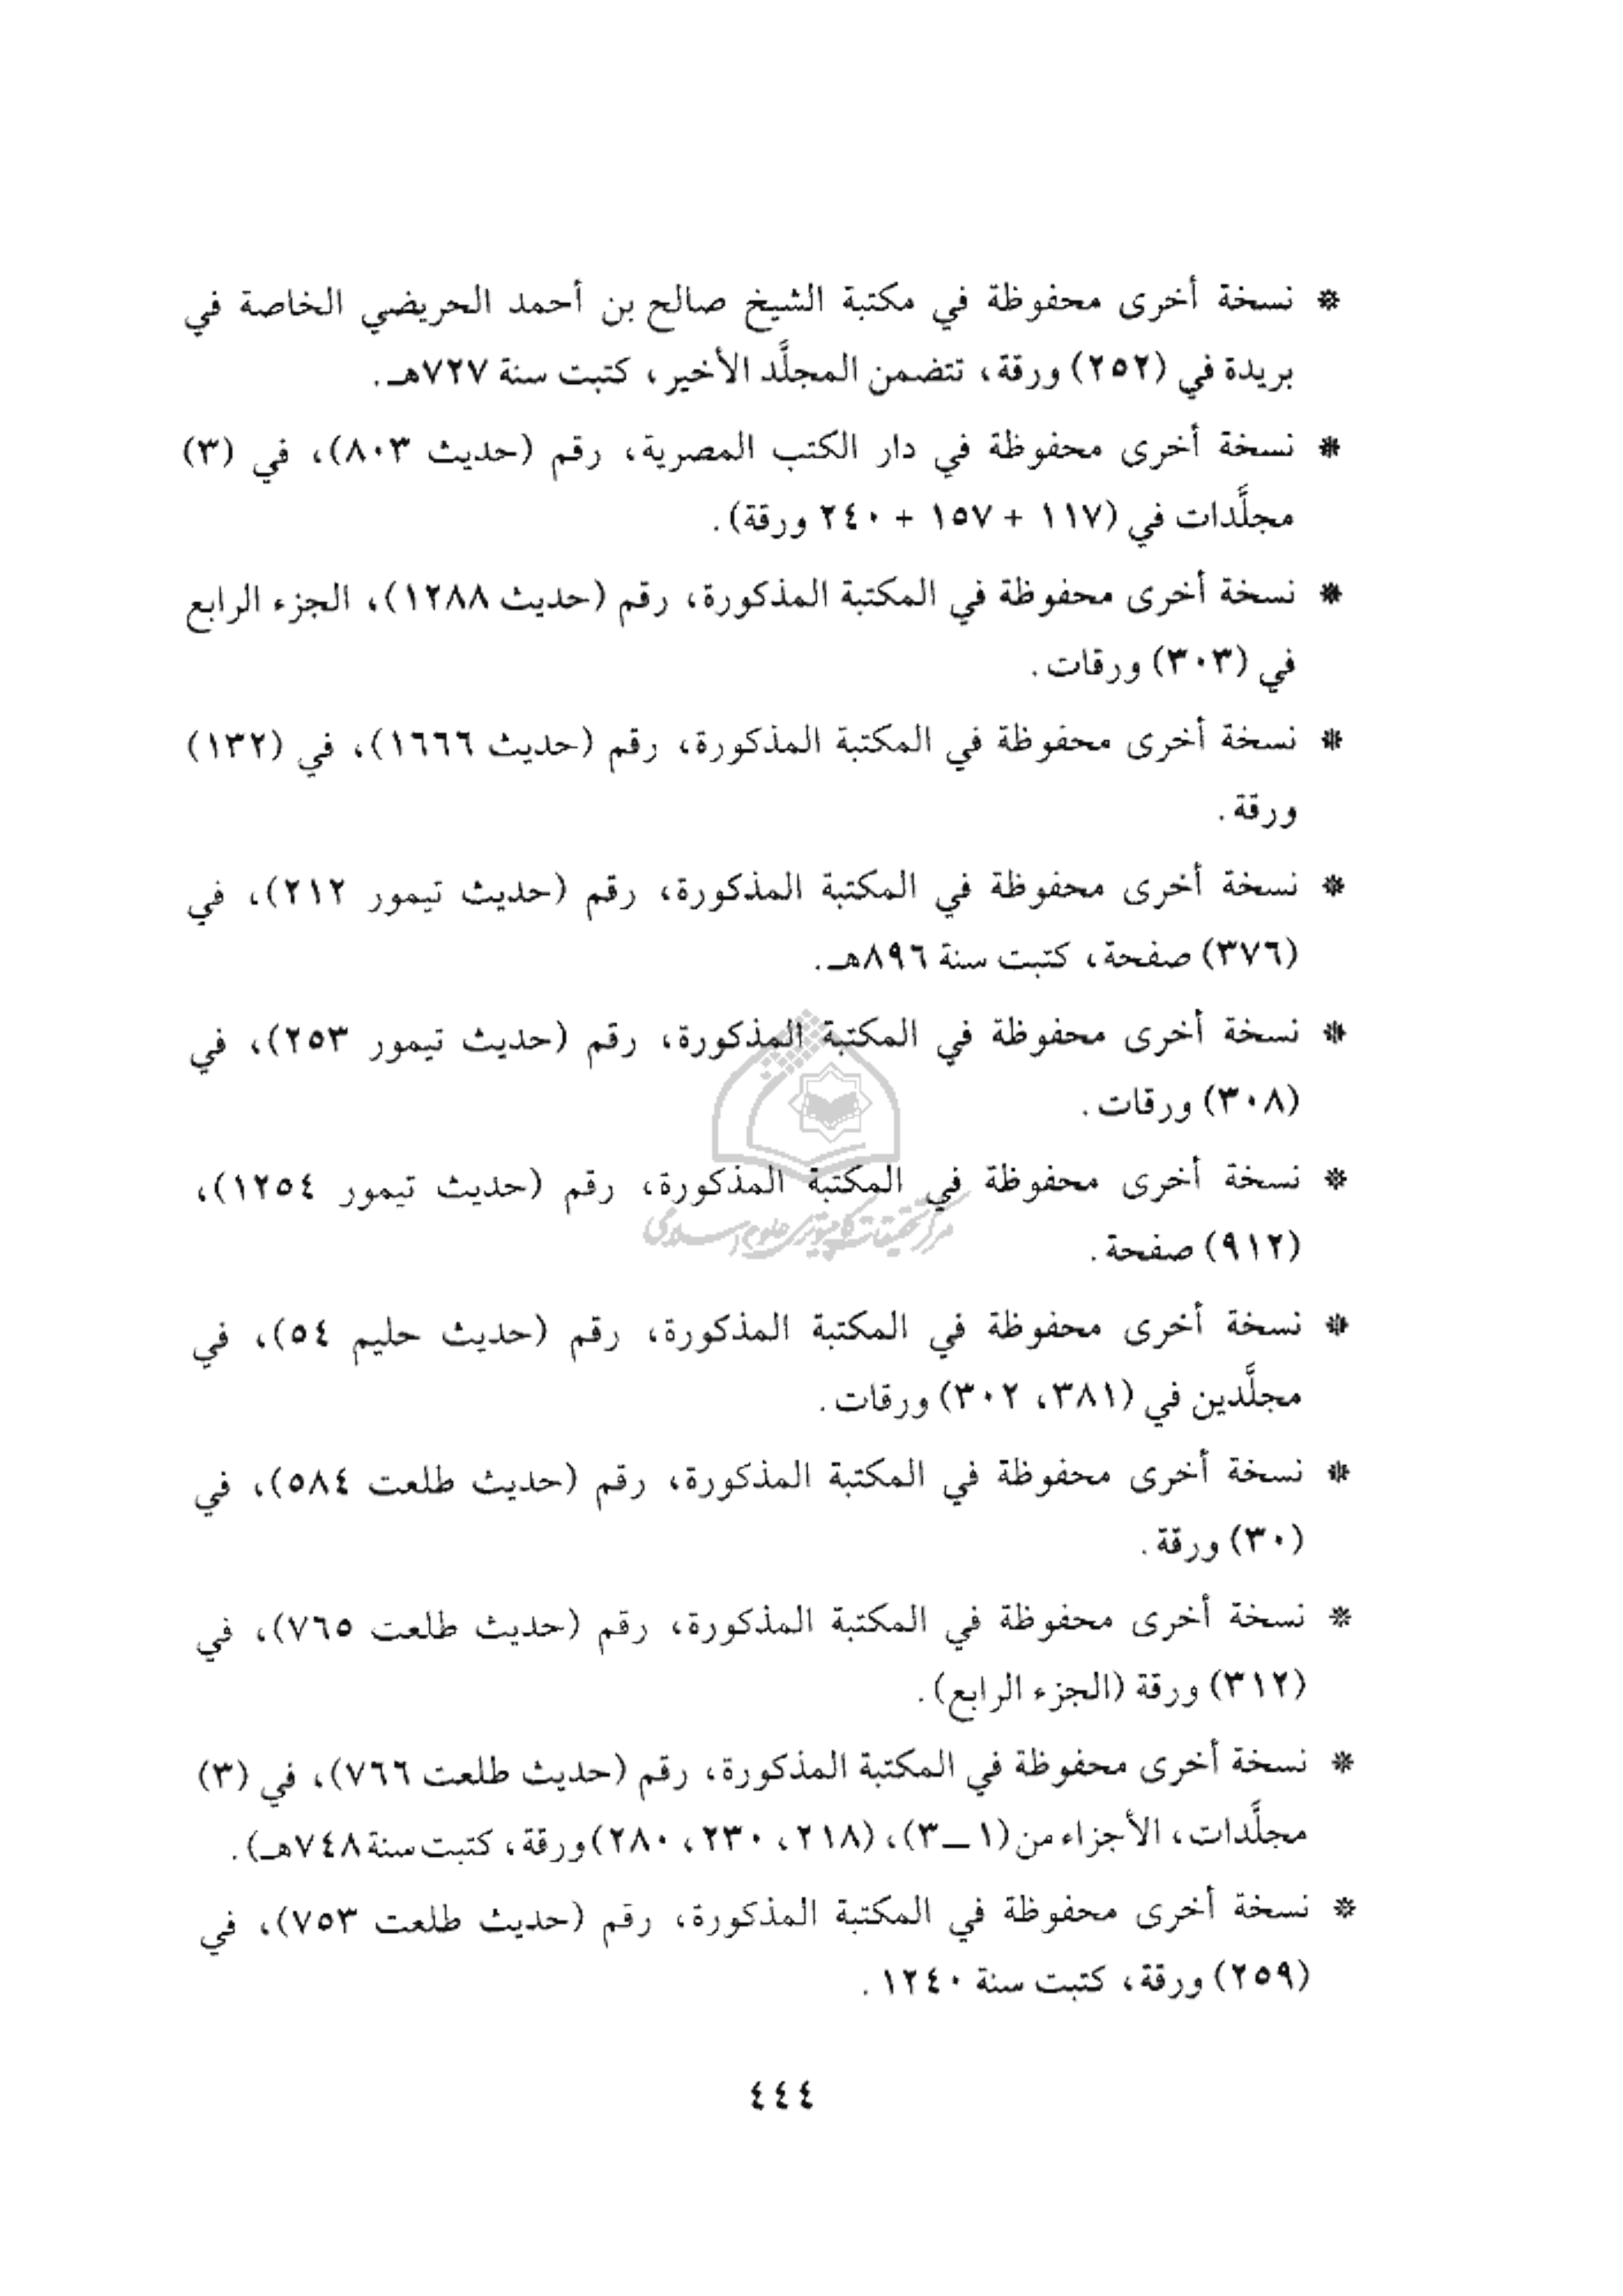 * نسخة أخرى محفوظة في مكتبة الشيخ صالح بن أحمد الحريضي الخاصة في
بريدة في (٢٥٢) ورقة، تتضمن المجلَّد الأخير، كتبت سنة ٧٢٧هـ.
* نسخة أخرى محفوظة في دار الكتب المصرية، رقم (حديث ٨٠٣)، في (٣)
مجلَّدات في (١١٧ + ١٥٧ + ٢٤٠ ورقة).
* نسخة أخرى محفوظة في المكتبة المذكورة، رقم (حديث ١٢٨٨)، الجزء الرابع
في (٣٠٣) ورقات.
* نسخة أخرى محفوظة في المكتبة المذكورة، رقم (حديث ١٦٦٦)، في (١٣٢)
ورقة.
* نسخة أخرى محفوظة في المكتبة المذكورة، رقم (حديث تيمور ٢١٢)، في
(٣٧٦) صفحة، كتبت سنة ٨٩٦هـ.
* نسخة أخرى محفوظة في المكتبة المذكورة، رقم (حديث تيمور ٢٥٣)، في
(٣٠٨) ورقات.
* نسخة أخرى محفوظة في المكتبة المذكورة، رقم (حديث تيمور ١٢٥٤)،
مرکز تحقیقات کامپیوتری علوم اسلامی
(٩١٢) صفحة.
* نسخة أخرى محفوظة في المكتبة المذكورة، رقم (حديث حليم ٥٤)، في
مجلَّدين في (٣٨١، ٣٠٢) ورقات.
* نسخة أخرى محفوظة في المكتبة المذكورة، رقم (حديث طلعت ٥٨٤)، في
(٣٠) ورقة.
* نسخة أخرى محفوظة في المكتبة المذكورة، رقم (حديث طلعت ٧٦٥)، في
(٣١٢) ورقة (الجزء الرابع).
* نسخة أخرى محفوظة في المكتبة المذكورة، رقم (حديث طلعت ٧٦٦)، في (٣)
مجلَّدات، الأجزاء من (١ ــ ٣)، (٢١٨، ٢٣٠، ٢٨٠) ورقة، كتبت سنة ٧٤٨هـ).
* نسخة أخرى محفوظة في المكتبة المذكورة، رقم (حديث طلعت ٧٥٣)، في
(٢٥٩) ورقة، كتبت سنة ١٢٤٠.
٤٤٤